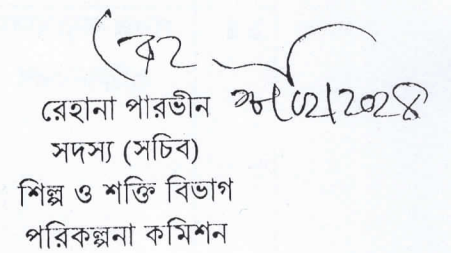 রেহানা পারভীন
সদস্য (সচিব)
শিল্প ও শক্তি বিভাগ
পরিকল্পনা কমিশন